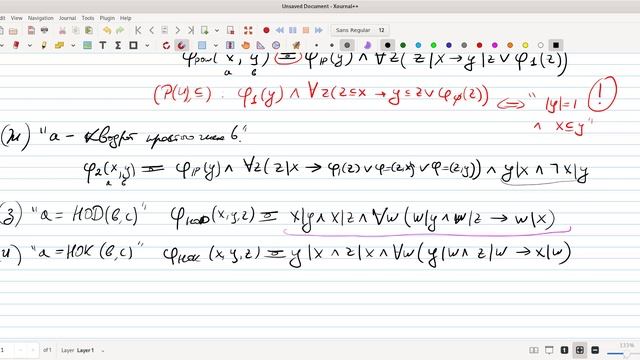 Unsaved Document - Xournal++
Edit View Navigation Journal Tools Plugin Help
Sans Regular 12
(x, y) ≡ φ_ip(y) ∧ ∀z(z|x → y|z ∨ φ₁(z))
a b
(P(U),⊆): φ₁(y) ∧ ∀z(z⊆x → y⊆z ∨ φ_∅(z)) ⇔ "|y|=1
∧ x⊆y" !
"a – квадрат простого числа b"
φ₂(x,y) ≡ φ_ip(y) ∧ ∀z(z|x → φ₁(z) ∨ φ=(z,x) ∨ φ=(z,y)) ∧ y|x ∧ ¬x|y
a b
(з) "a = НОД(b,c)" φ_НОД(x,y,z) ≡ x|y ∧ x|z ∧ ∀w(w|y ∧ w|z → w|x)
"a = НОК(b,c)" φ_НОК(x,y,z) ≡ y|x ∧ z|x ∧ ∀w(y|w ∧ z|w → x|w)
1 of 1 Layer Layer 1 133%